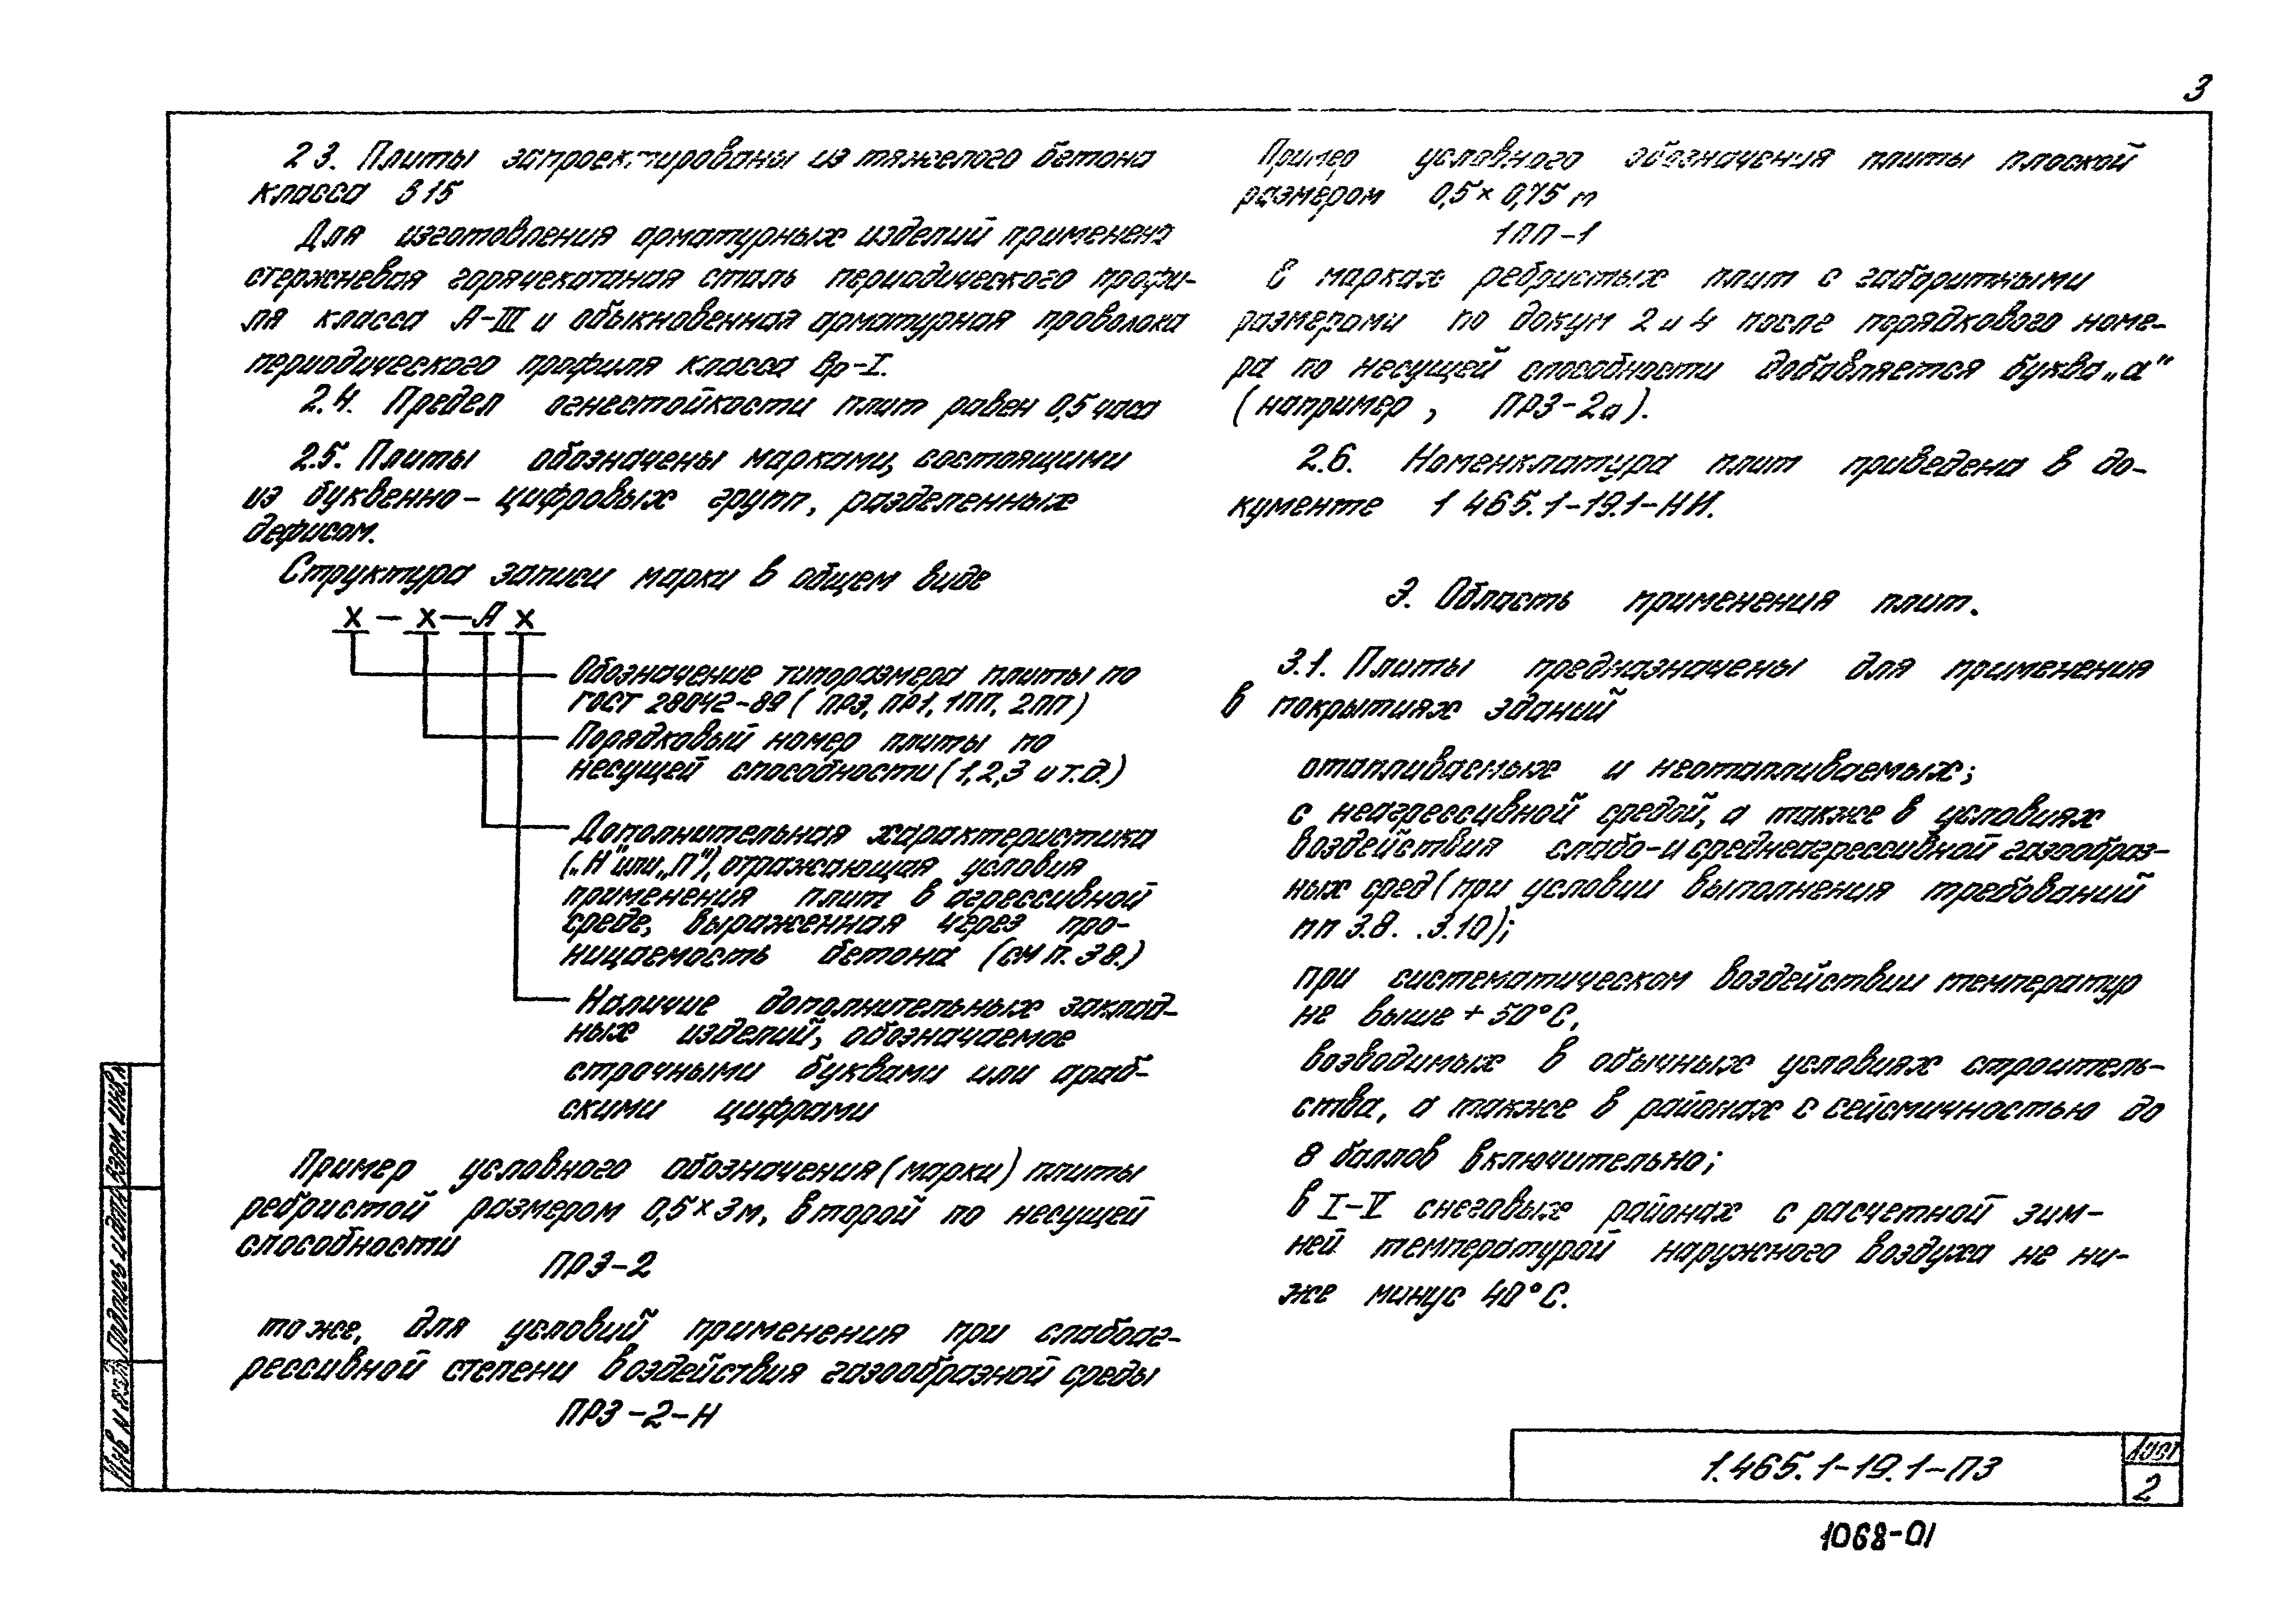 3
2 3. Плиты запроектированы из тяжелого бетона
класса В15
Для изготовления арматурных изделий применена
стержневая горячекатаная сталь периодического профи-
ля класса А-III и обыкновенная арматурная проволока
периодического профиля класса Вр-I.
2.4. Предел огнестойкости плит равен 0,5 часа
2.5. Плиты обозначены марками, состоящими
из буквенно-цифровых групп, разделенных
дефисом.
Структура записи марки в общем виде
х - х - А х
Обозначение типоразмера плиты по
ГОСТ 28042-89 ( ПР3, ПР1, 1ПП, 2ПП)
Порядковый номер плиты по
несущей способности (1,2,3 и т.д.)
Дополнительная характеристика
(„Н" или „П"), отражающая условия
применения плит в агрессивной
среде, выраженная через про-
ницаемость бетона (см п. 3 8.)
Наличие дополнительных заклад-
ных изделий, обозначаемое
строчными буквами или араб-
скими цифрами
Пример условного обозначения (марки) плиты
ребристой размером 0,5×3м, второй по несущей
способности
ПР3-2
то же, для условий применения при слабоаг-
рессивной степени воздействия газообразной среды
ПР3-2-Н
Пример условного обозначения плиты плоской
размером 0,5× 0,75 м
1ПП-1
В марках ребристых плит с габаритными
размерами по докум 2 и 4 после порядкового номе-
ра по несущей способности добавляется буква „а"
(например, ПР3-2а).
2.6. Номенклатура плит приведена в до-
кументе 1 465.1-19.1-НИ.
3. Область применения плит.
3.1. Плиты предназначены для применения
в покрытиях зданий
отапливаемых и неотапливаемых;
с неагрессивной средой, а также в условиях
воздействия слабо- и среднеагрессивной газообраз-
ных сред (при условии выполнения требований
пп 3.8. .3.10);
при систематическом воздействии температур
не выше + 50°С,
возводимых в обычных условиях строитель-
ства, а также в районах с сейсмичностью до
8 баллов включительно;
в I-V снеговых районах с расчетной зим-
ней температурой наружного воздуха не ни-
же минус 40°С.
Инв № подл
Подпись и дата
Взам. инв. №
1.465.1-19.1-ПЗ
Лист
2
1068-01